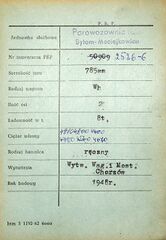 P. K. P.
Jednostka służbowa Parowozownia
Bytom-Maciejkowice
Nr inwentarza PKP 2586-6
Szerokość toru 785mm
Rodzaj wagonu Wh
Ilość osi 2
Ładowność w t. 8t,
Ciężar własny
Rodzaj hamulca ręczny
Wytwórnia Wytw. Wag. i Most.
Chorzów
Rok budowy 1948r.